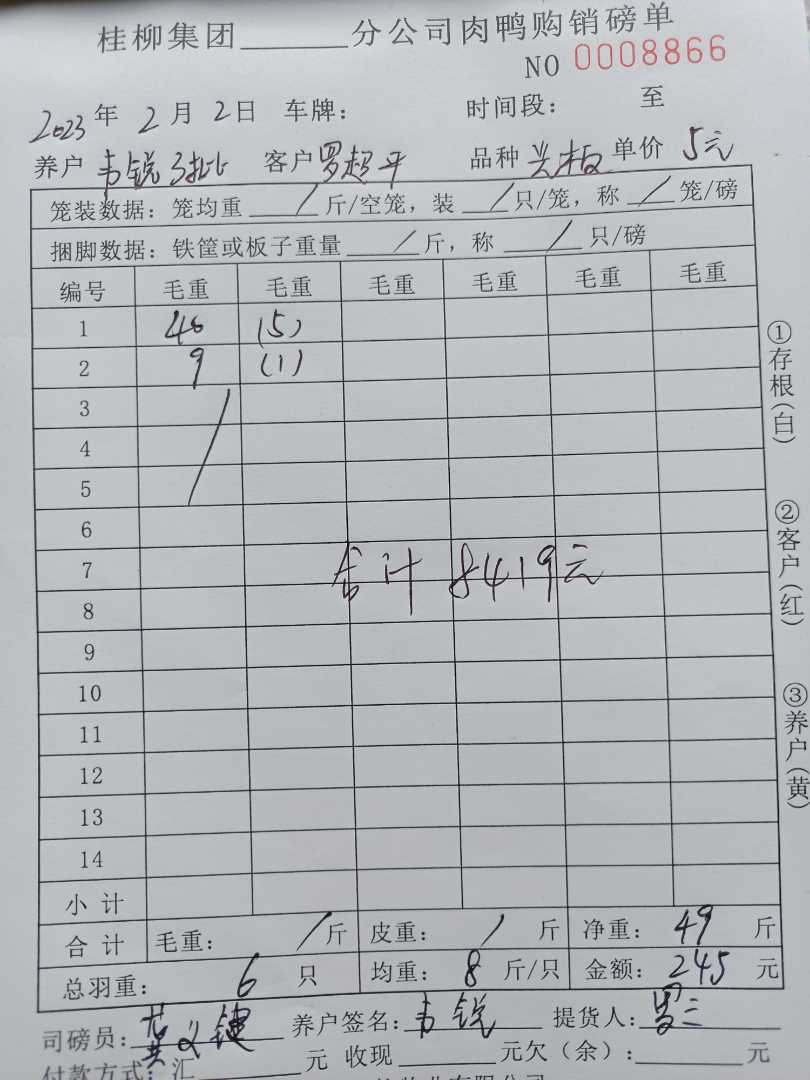 桂柳集团______分公司肉鸭购销磅单
NO 0008866
2023年2月2日 车牌： 时间段： 至
养户 韦锐3批 客户 罗超平 品种 单价 5元
笼装数据：笼均重 / 斤/空笼，装 / 只/笼，称 / 笼/磅
捆脚数据：铁筐或板子重量 / 斤，称 / 只/磅
编号 毛重 毛重 毛重 毛重 毛重 毛重
1 40 (5)
2 9 (1)
3
4
5
6
7
合计 8419元
8
9
10
11
12
13
14
小计
合计 毛重： / 斤 皮重： / 斤 净重： 49 斤
总羽重： 6 只 均重： 8 斤/只 金额： 245 元
司磅员： 养户签名：韦锐 提货人：罗三
付款方式：汇______元 收现______元欠（余）：______元
①存根(白)
②客户(红)
③养户(黄)